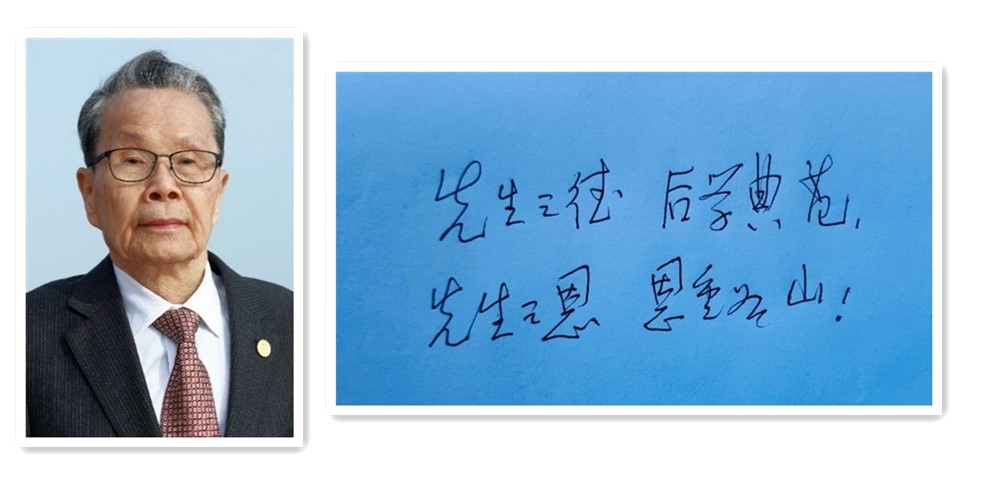 先生之德 后学典范,
先生之恩 恩重如山!